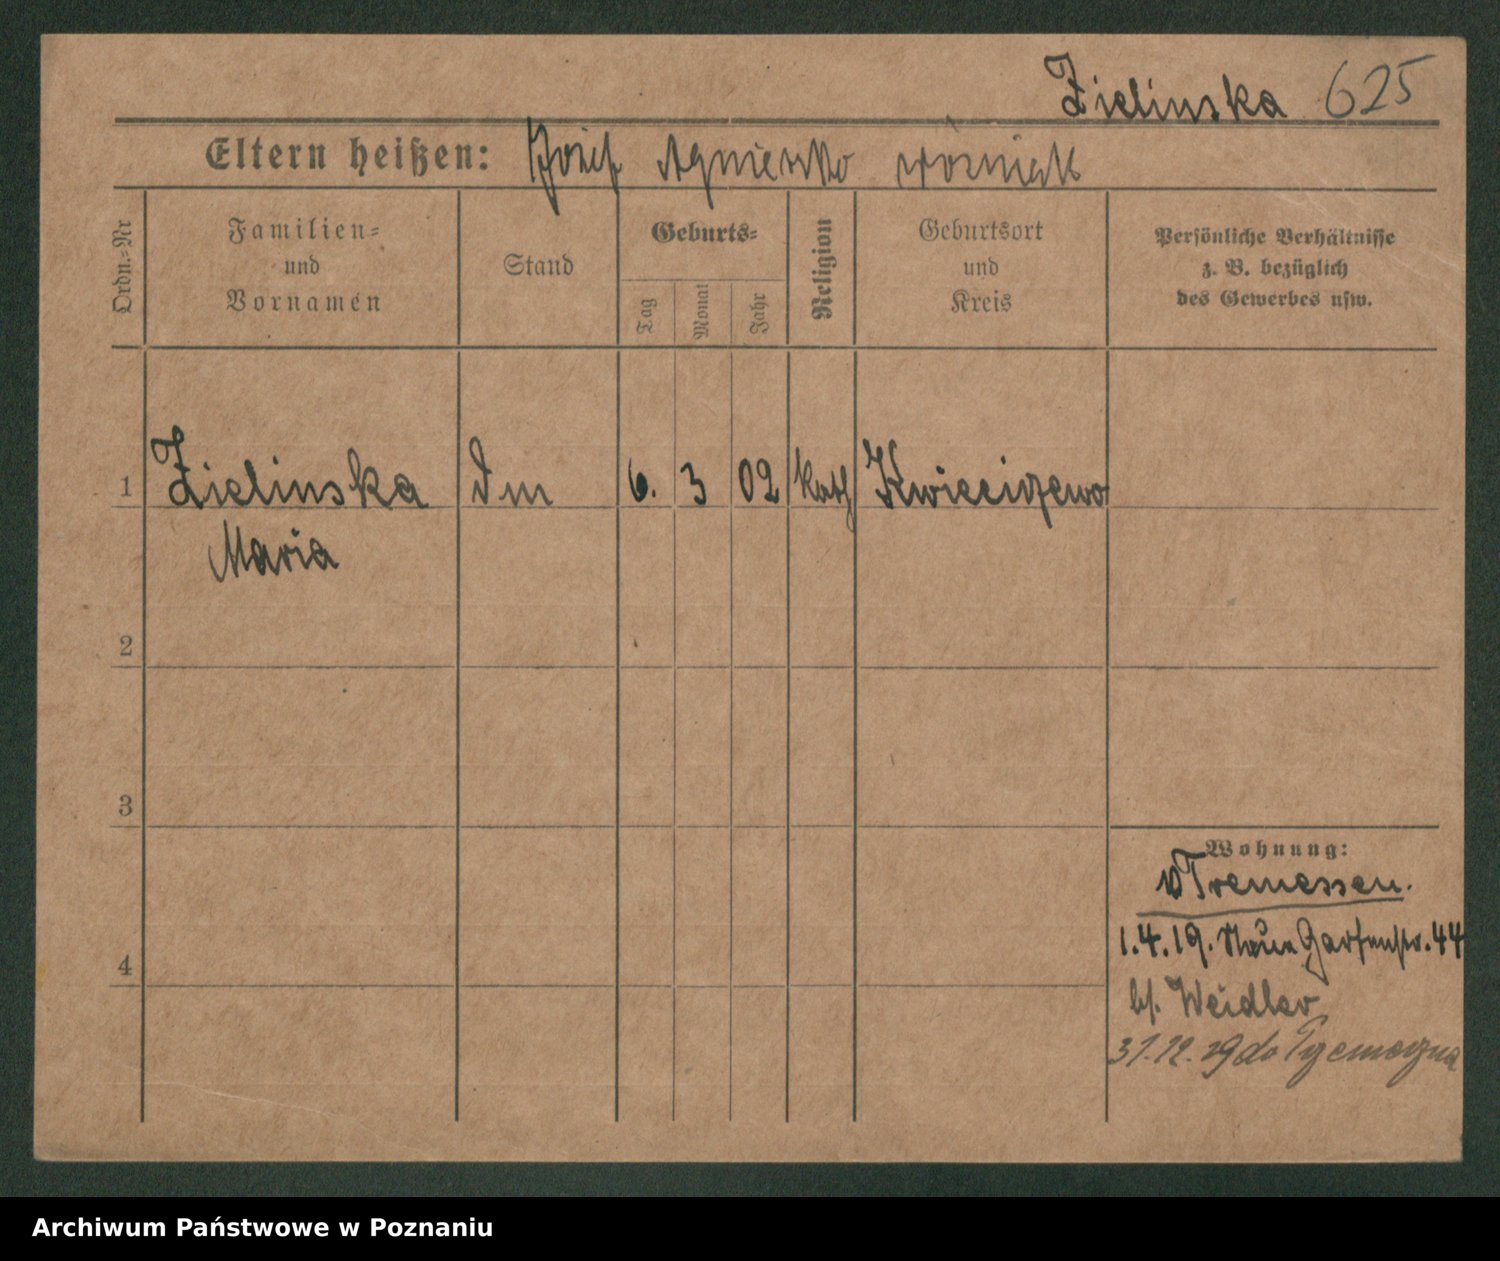 Zielinska 625
Eltern heißen: Józef Agnieszka Woźniak
Ordn.-Nr
Familien-
und
Vornamen
Stand
Geburts-
Tag
Monat
Jahr
Religion
Geburtsort
und
Kreis
Persönliche Verhältnisse
z. B. bezüglich
des Gewerbes usw.
1 Zielinska Dm 6. 3 02 kath Kwieciszewo
Maria
2
3
4
Wohnung:
v Tremessen.
1.4.19. Neue Gartenstr. 44
bf. Weidler
31.12.19 do
Archiwum Państwowe w Poznaniu